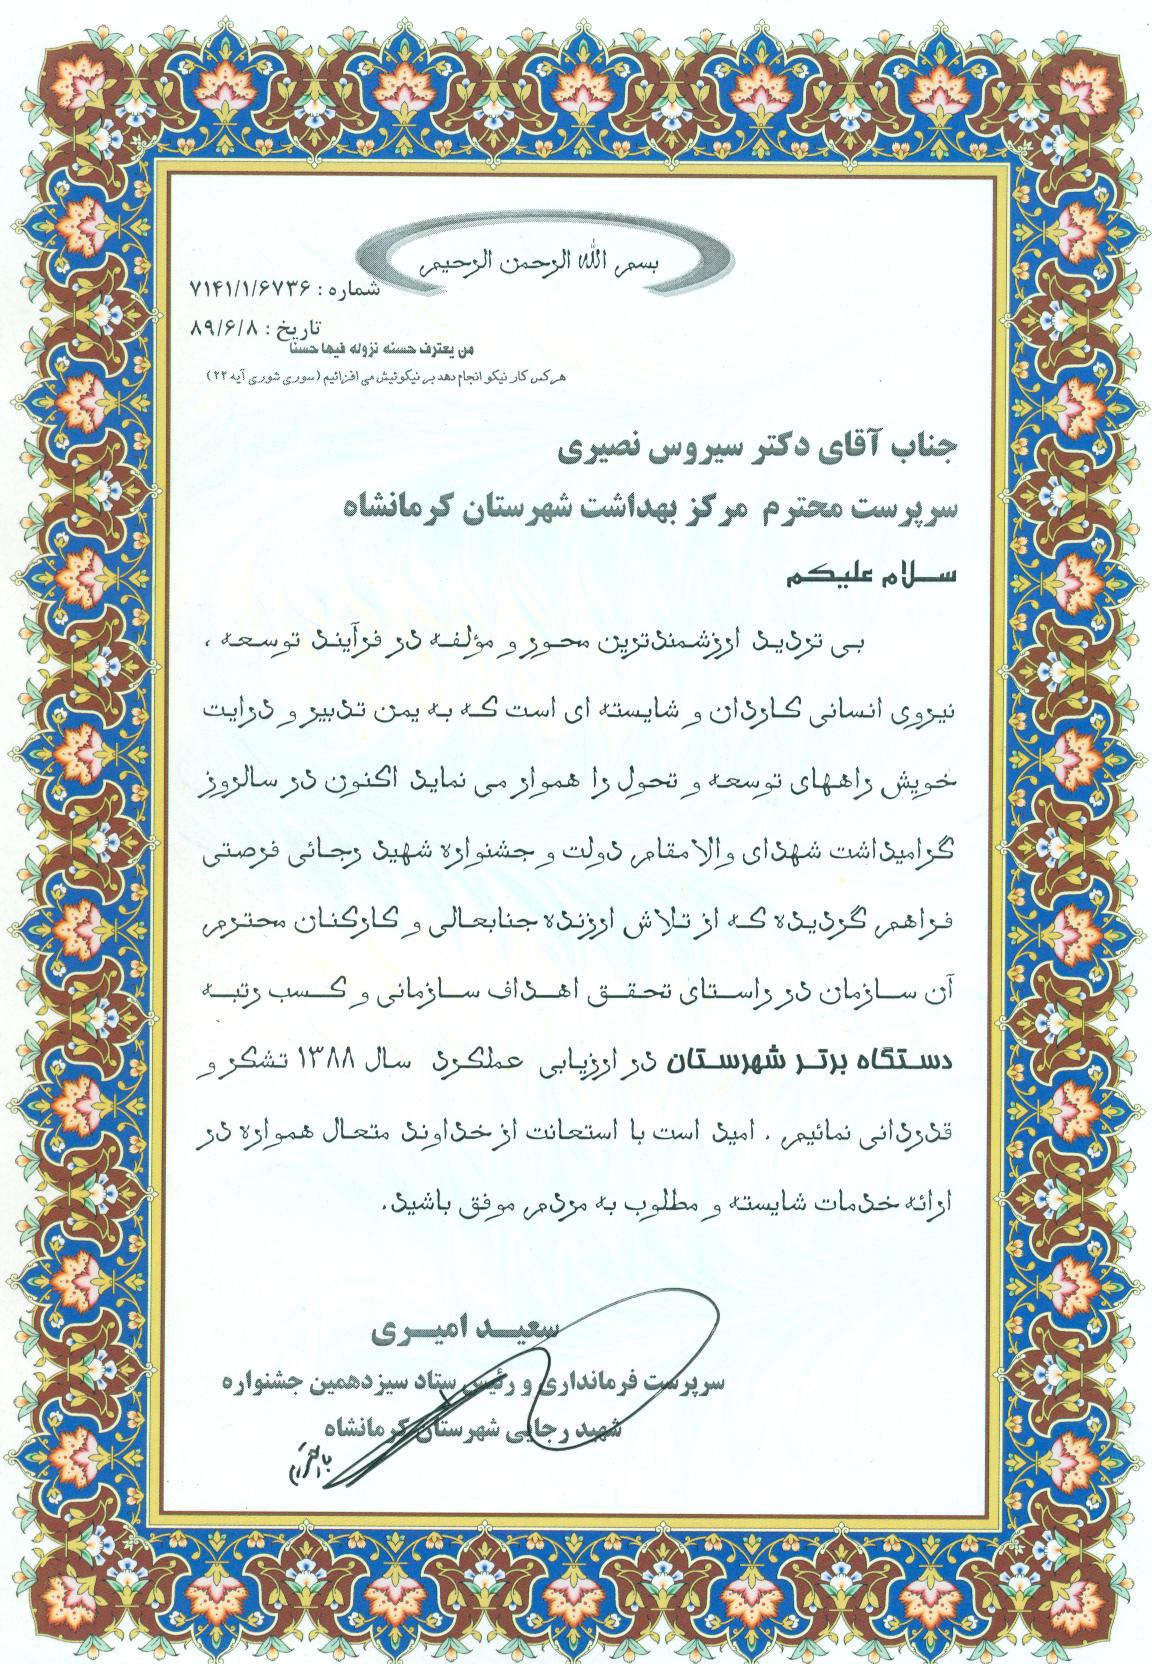 بسم الله الرحمن الرحیم
شماره : ۷۱۴۱/۱/۶۷۳۶
تاریخ : ۸۹/۶/۸
من یعترف حسنه نزوله فیها حسنا
هر کس کار نیکو انجام دهد بر نیکوئیش می افزائیم (سوری شوری آیه ۲۲)
جناب آقای دکتر سیروس نصیری
سرپرست محترم مرکز بهداشت شهرستان کرمانشاه
سلام علیکم
بی تردید ارزشمندترین محور و مؤلفه در فرآیند توسعه ،
نیروی انسانی کاردان و شایسته ای است که به یمن تدبیر و درایت
خویش راههای توسعه و تحول را هموار می نماید اکنون در سالروز
گرامیداشت شهدای والامقام دولت و جشنواره شهید رجائی فرصتی
فراهم گردیده که از تلاش ارزنده جنابعالی و کارکنان محترم
آن سازمان در راستای تحقق اهداف سازمانی و کسب رتبه
دستگاه برتر شهرستان در ارزیابی عملکرد سال ۱۳۸۸ تشکر و
قدردانی نمائیم . امید است با استعانت از خداوند متعال همواره در
ارائه خدمات شایسته و مطلوب به مردم موفق باشید.
سعید امیری
سرپرست فرمانداری و رئیس ستاد سیزدهمین جشنواره
شهید رجایی شهرستان کرمانشاه